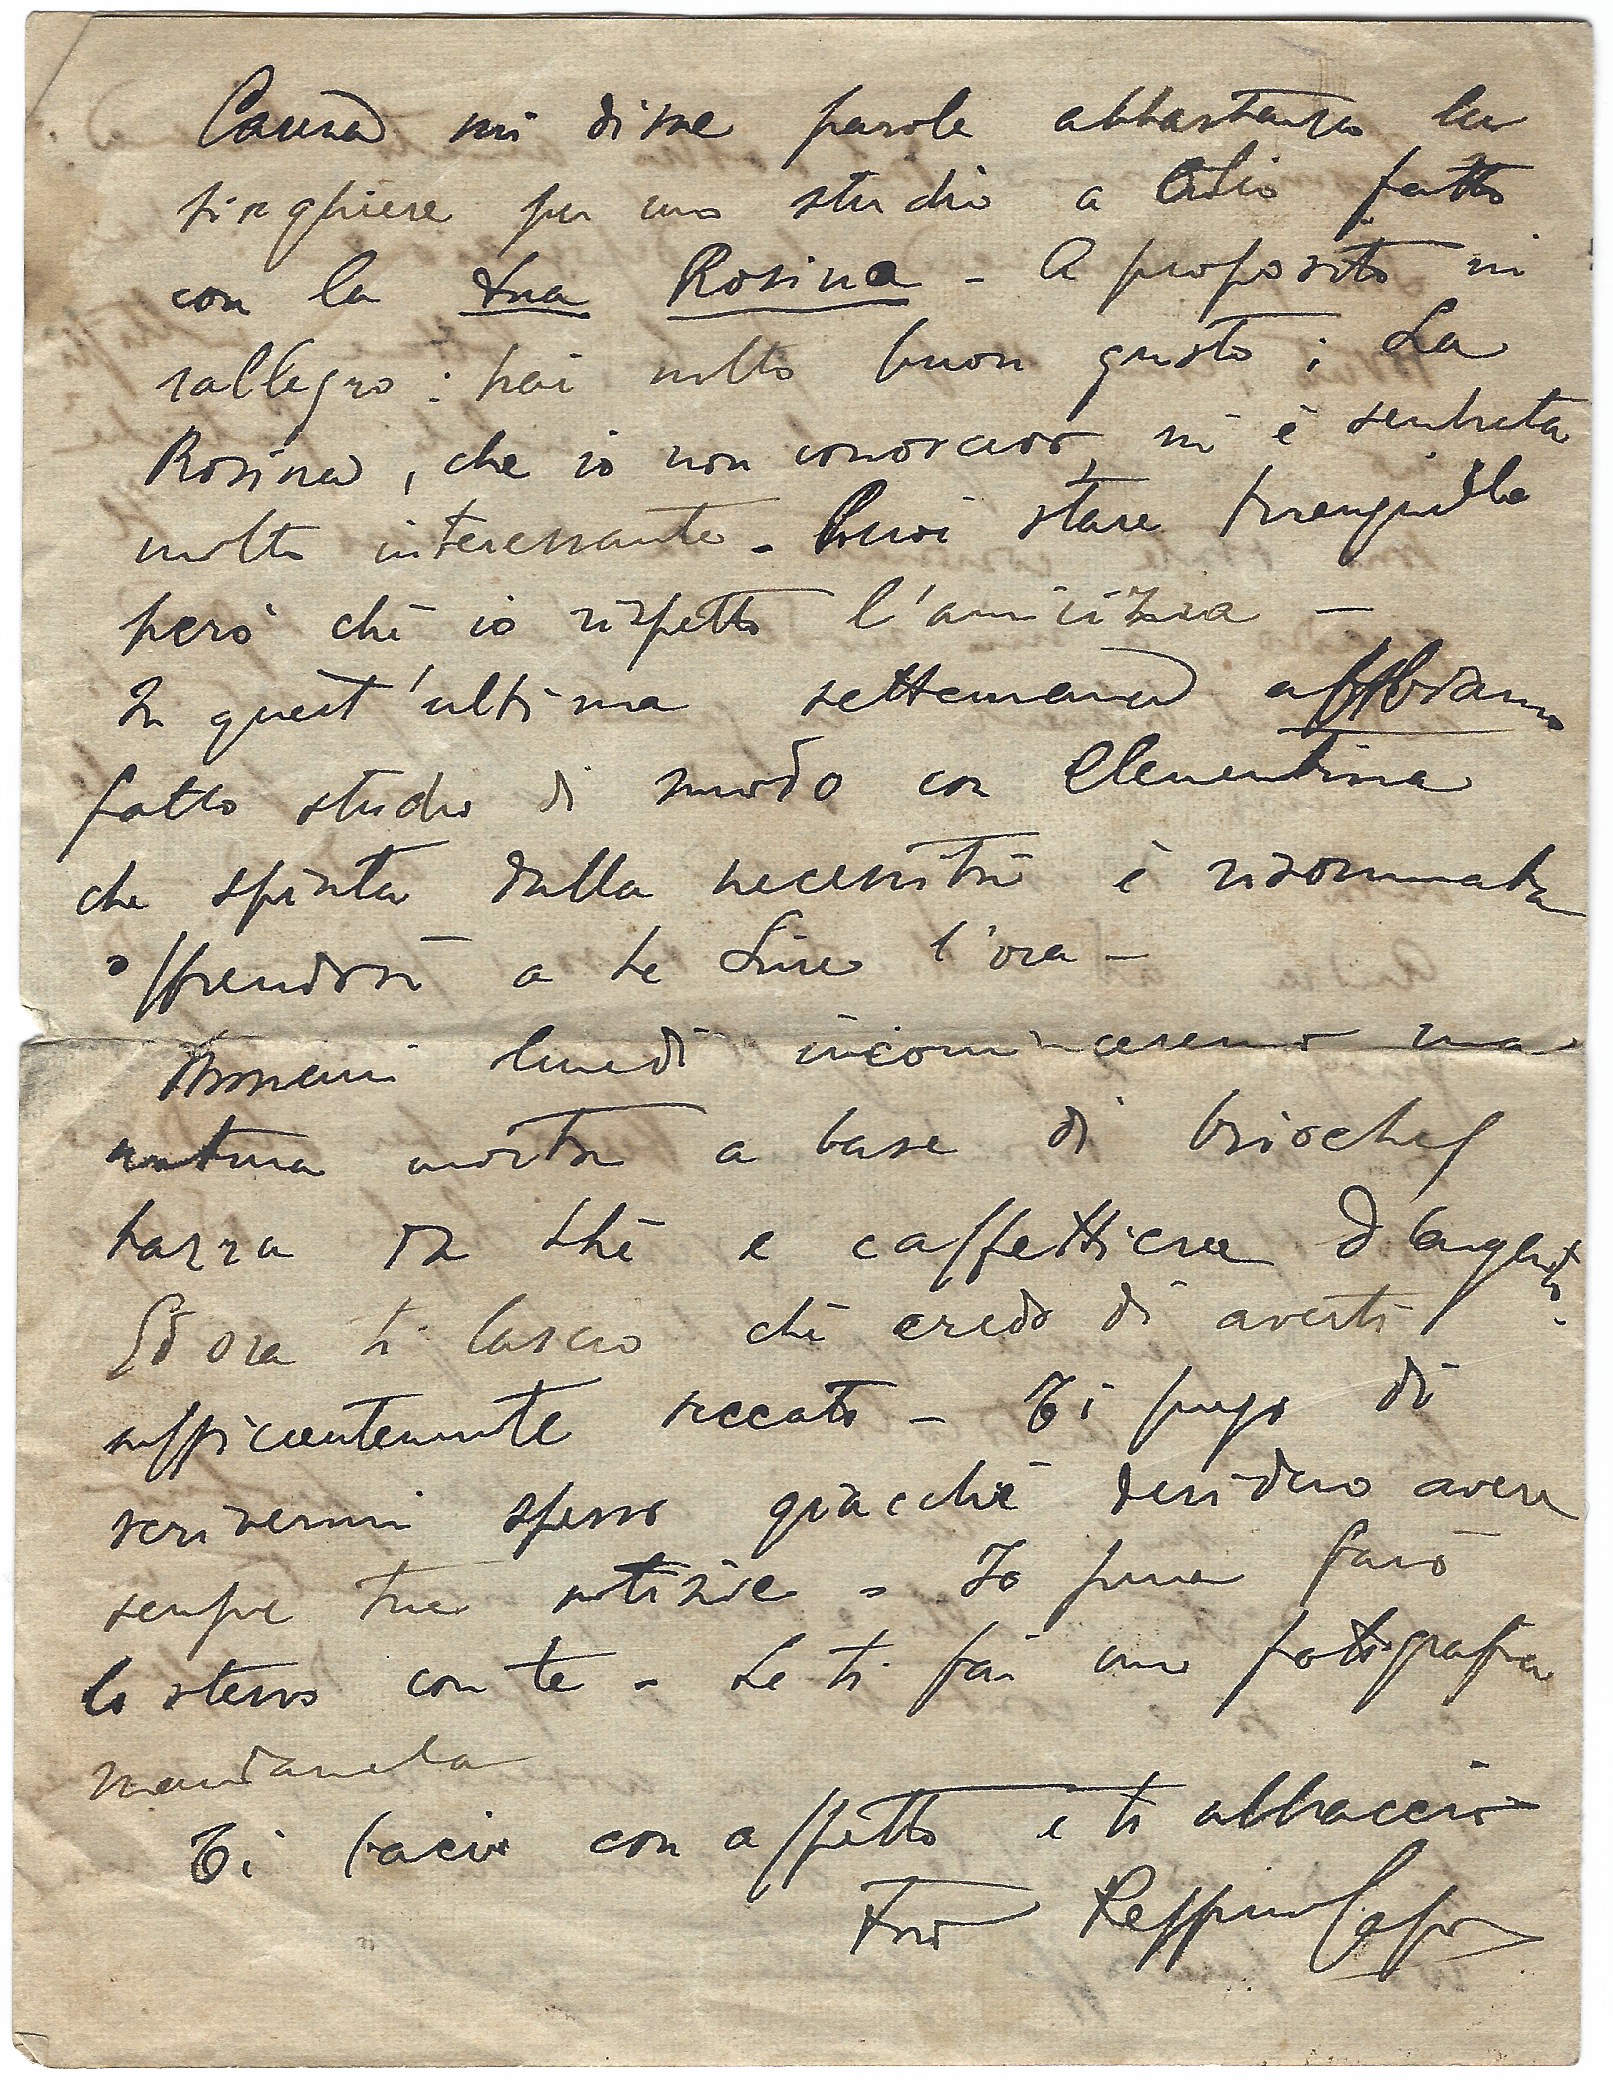 Causa mi disse parole abbastanza lu
singhiere per uno studio a olio fatto
con la tua Rosina - A proposito mi
rallegro: hai molto buon gusto; La
Rosina, che io non conoscevo, mi è sembrata
molto interessante - Puoi stare tranquillo
però che io rispetto l'amicizia -
In quest'ultima settimana abbiamo
fatto studio di nudo con Clementina
che spinta dalla necessità è
offrendosi a tre Lire l'ora -
Domani lunedì incominceremo una
natura morta a base di brioches
tazza da thè e caffettiera d'argento.
Ed ora ti lascio chè credo di averti
sufficientemente seccato - Ti prego di
scrivermi spesso giacchè desidero avere
sempre tue notizie - Io pure farò
lo stesso con te - Se ti fai una fotografia
mandamela
Ti bacio con affetto e ti abbraccio
Tuo